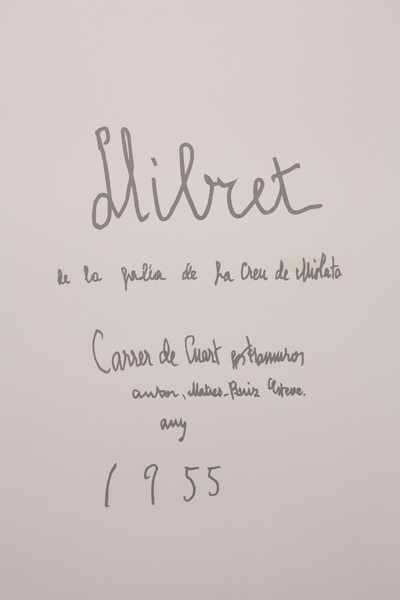 Llibret
de la falla de La Creu de Mislata
Carrer de Cuart extramuros
autor, Maties Ruiz Esteve.
any
1955